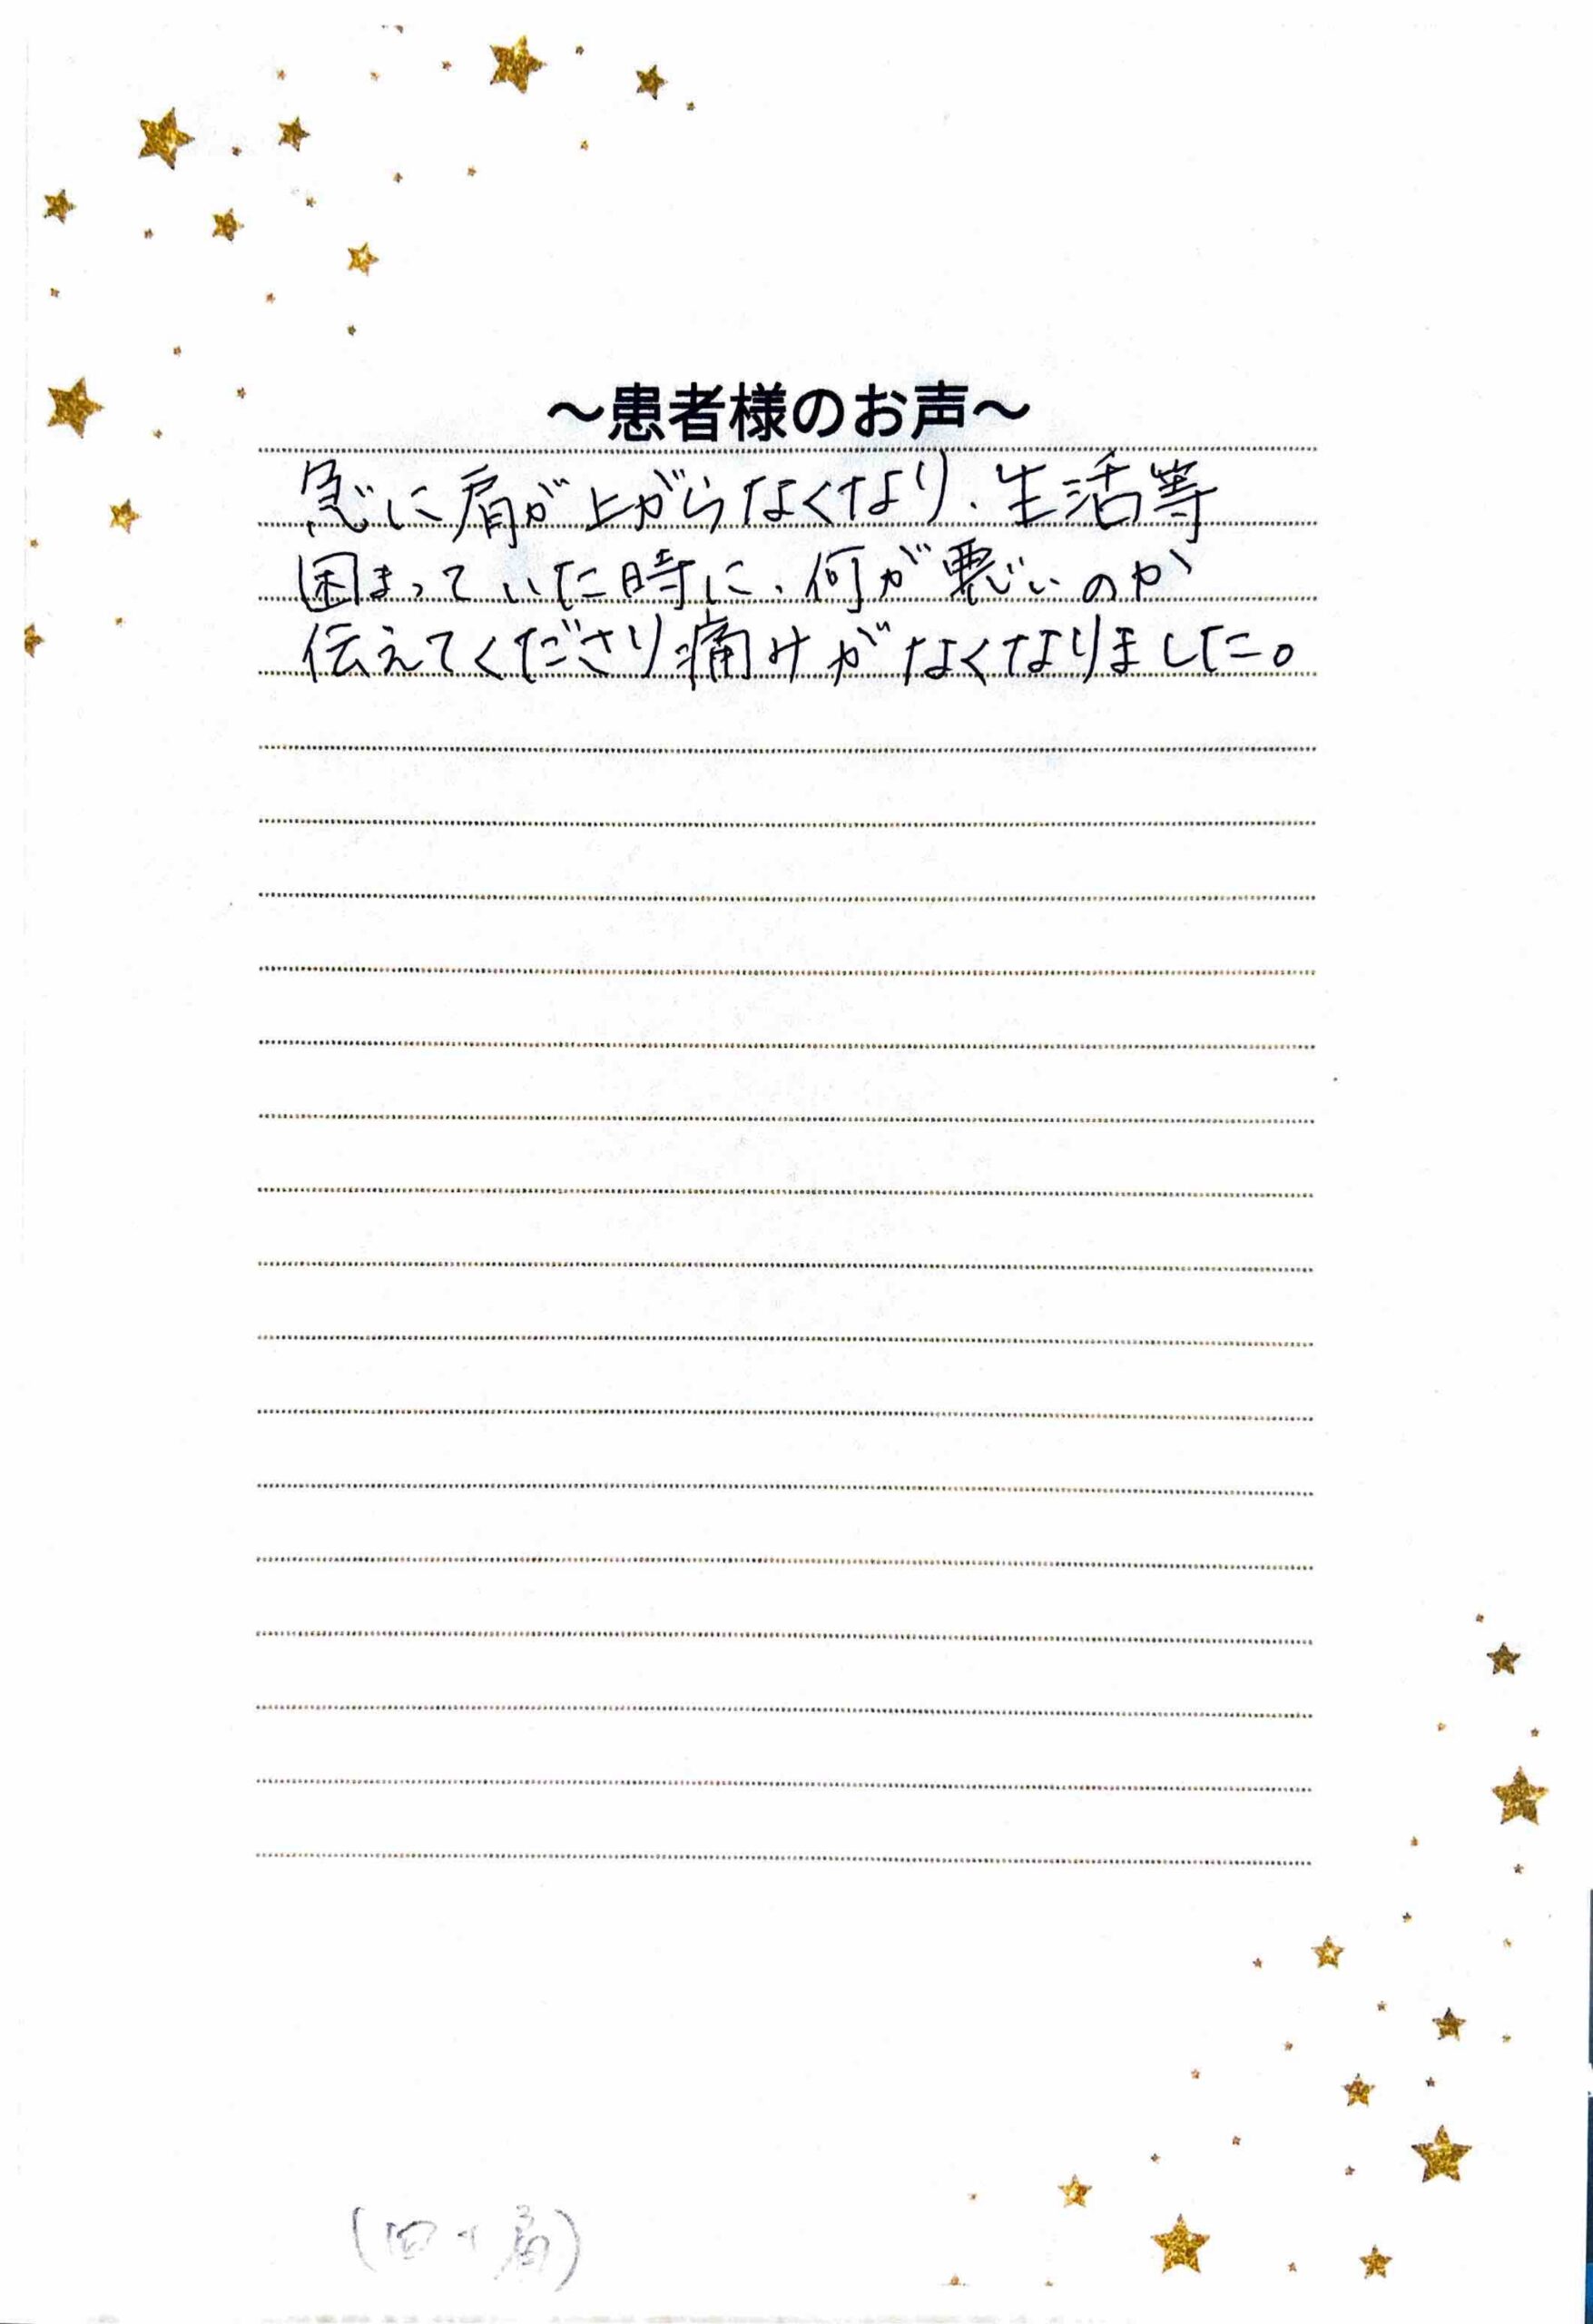 ～患者様のお声～
急に肩が上がらなくなり、生活等
困まっていた時に、何が悪いのか
伝えてくださり痛みがなくなりました。
肩)